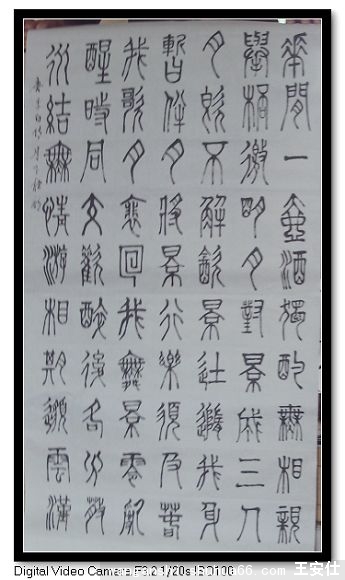 華間一壺酒獨酌無相親
舉桮邀明月對景成三人
月既不解飲景徒隨我身
暫伴月將景行樂須及春
我歌月裵回我舞景零亂
醒時同交歡醉後各分散
永結無情游相期邈雲漢
李太白詩月下獨酌
Digital Video Camera F3.2 1/20s ISO100
王安仕